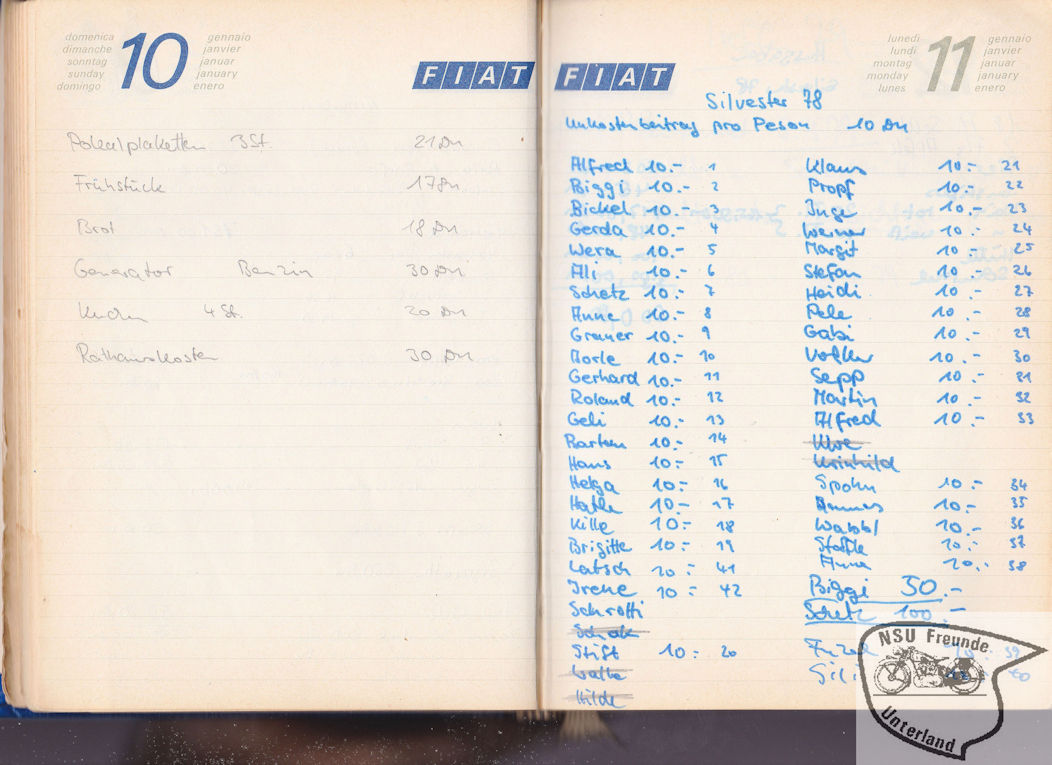 domenica
dimanche
sonntag
sunday
domingo
10
gennaio
janvier
januar
january
enero
FIAT
Pokalplaketten 3 St. 21 DM
Frühstück 17 DM
Brot 18 DM
Generator Benzin 30 DM
Kuchen 4 St. 20 DM
Rathauskosten 30 DM
FIAT
lunedi
lundi
montag
monday
lunes
11
gennaio
janvier
januar
january
enero
Silvester 78
Unkostenbeitrag pro Peson 10 DM
Alfred 10.- 1
Biggi 10.- 2
Bickel 10.- 3
Gerda 10.- 4
Wera 10.- 5
Ali 10.- 6
Schetz 10.- 7
Anne 10.- 8
10.- 9
10.- 10
Gerhard 10.- 11
Roland 10.- 12
Geli 10.- 13
10.- 14
Hans 10.- 15
Helga 10.- 16
10.- 17
Kille 10.- 18
Brigitte 10.- 19
Latsch 10.- 41
Irene 10.- 42
Schrotti
Stift 10.- 20
Hilde
Klaus 10.- 21
Propf 10.- 22
Inge 10.- 23
Werner 10.- 24
Margit 10 25
Stefan 10.- 26
Heidi 10.- 27
Pele 10.- 28
Gabi 10.- 29
Volker 10.- 30
Sepp 10.- 31
Martin 10.- 32
Alfred 10.- 33
Uwe
Spohn 10.- 34
Hannes 10.- 35
Wabbl 10.- 36
10.- 37
Anna 10.- 38
Biggi 50.-
Schetz 100.-
39
40
NSU Freunde
Unterland